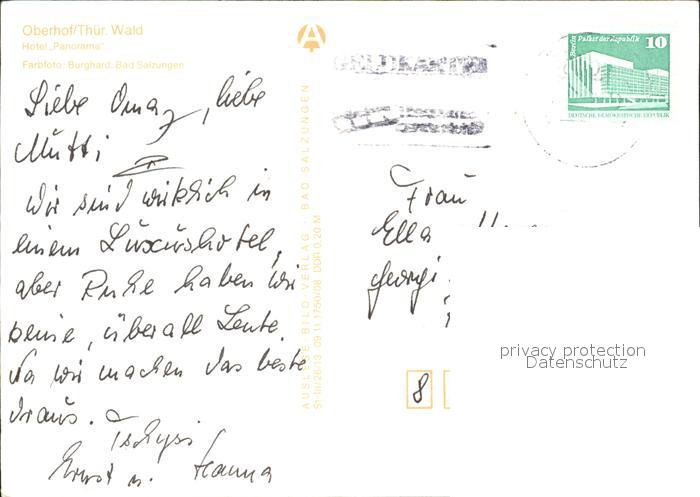 Oberhof/Thür. Wald
Hotel „Panorama"
Farbfoto: Burghard, Bad Salzungen
Liebe Oma, liebe
Mutti
Wir sind wirklich in
einem Luxushotel,
aber Ruhe haben wir
keine, überall Leute.
Na wir machen das beste
draus.
Tschüß
Ernst u. Hanna
AUSLESE-BILD-VERLAG · BAD SALZUNGEN
DDR 0,20 M
Berlin Palast der Republik
10
DEUTSCHE DEMOKRATISCHE REPUBLIK
Frau
Ella
Georgi
8
privacy protection
Datenschutz